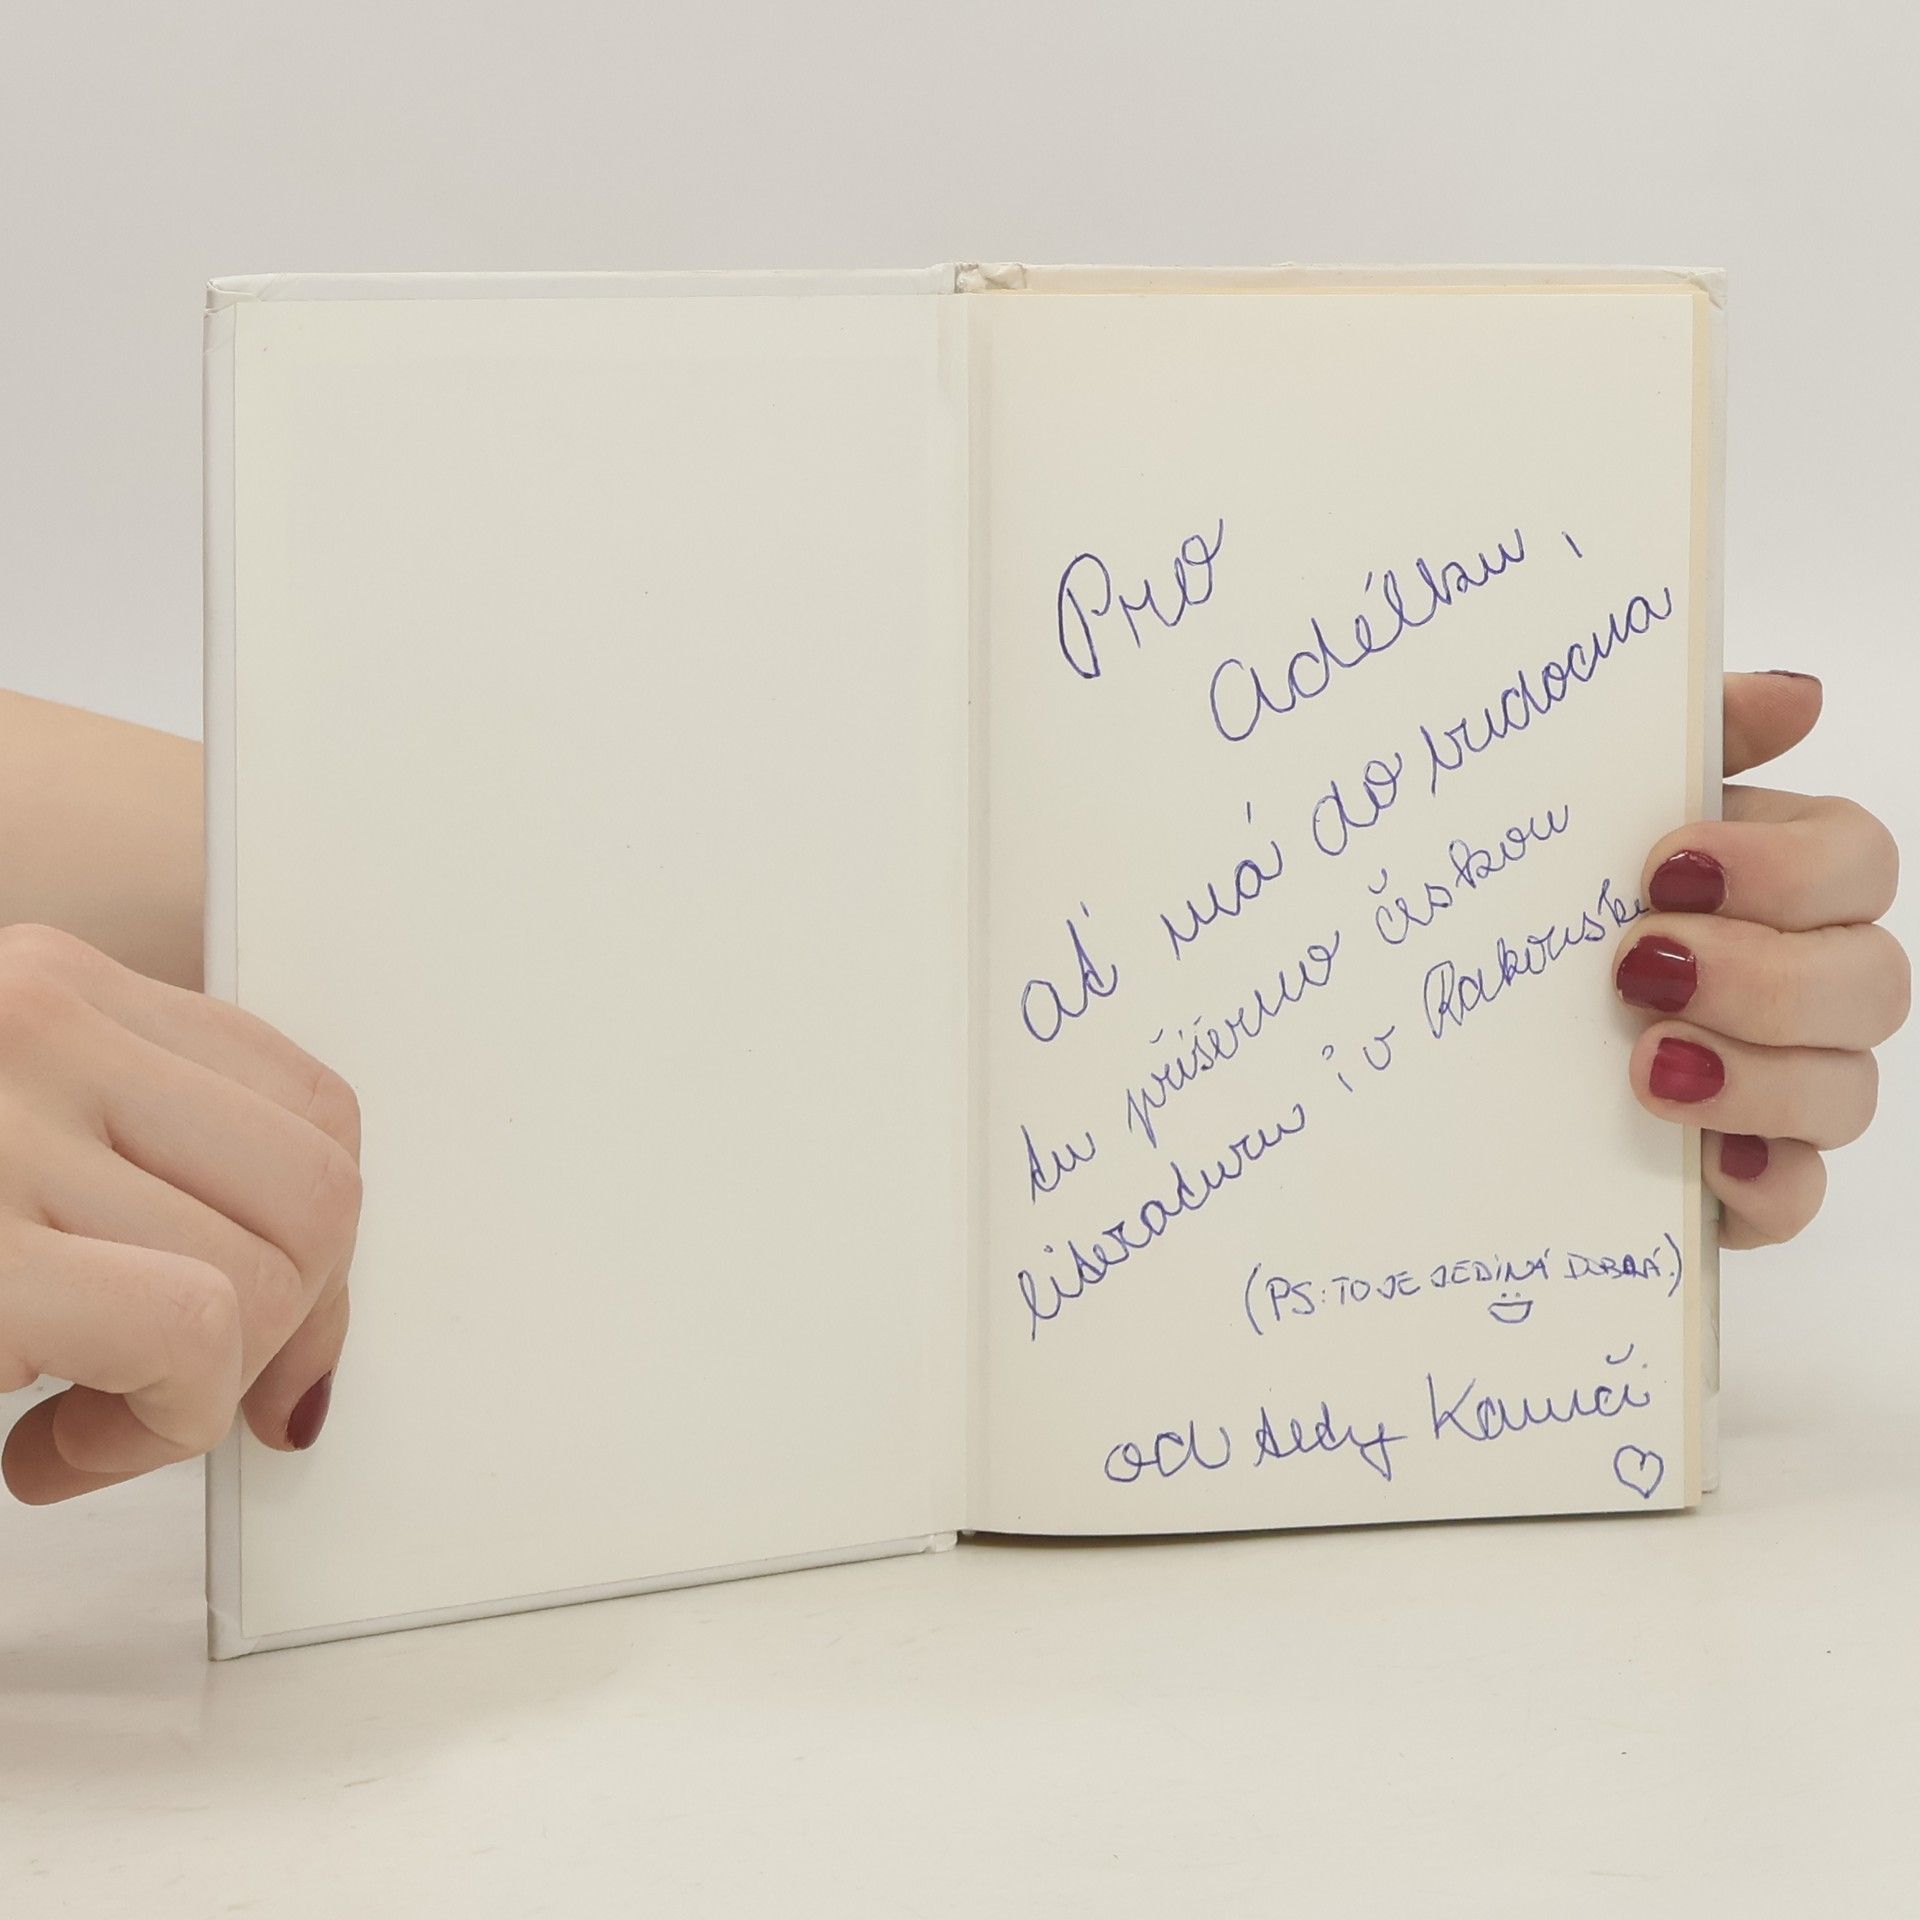 Pro
Adélku,
ať má do budocna
tu příšerno českou
literaturu i v Rakousku
(PS: TO JE JEDINÁ DOBRÁ.)
od tety Kamči